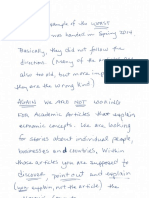 example of the WORST
was handed in Spring 2014
Basically, they did not follow the
directions (many of the articles
also too old, but more import
they are the wrong kind).
AGAIN We ARE NOT WORKING
FOR Academic Articles that explain
economic concepts. We are looking
for stories about individual people
businesses and countries. Within
those articles you are supposed to
discover, point out and explain
(you explain, not the article) the